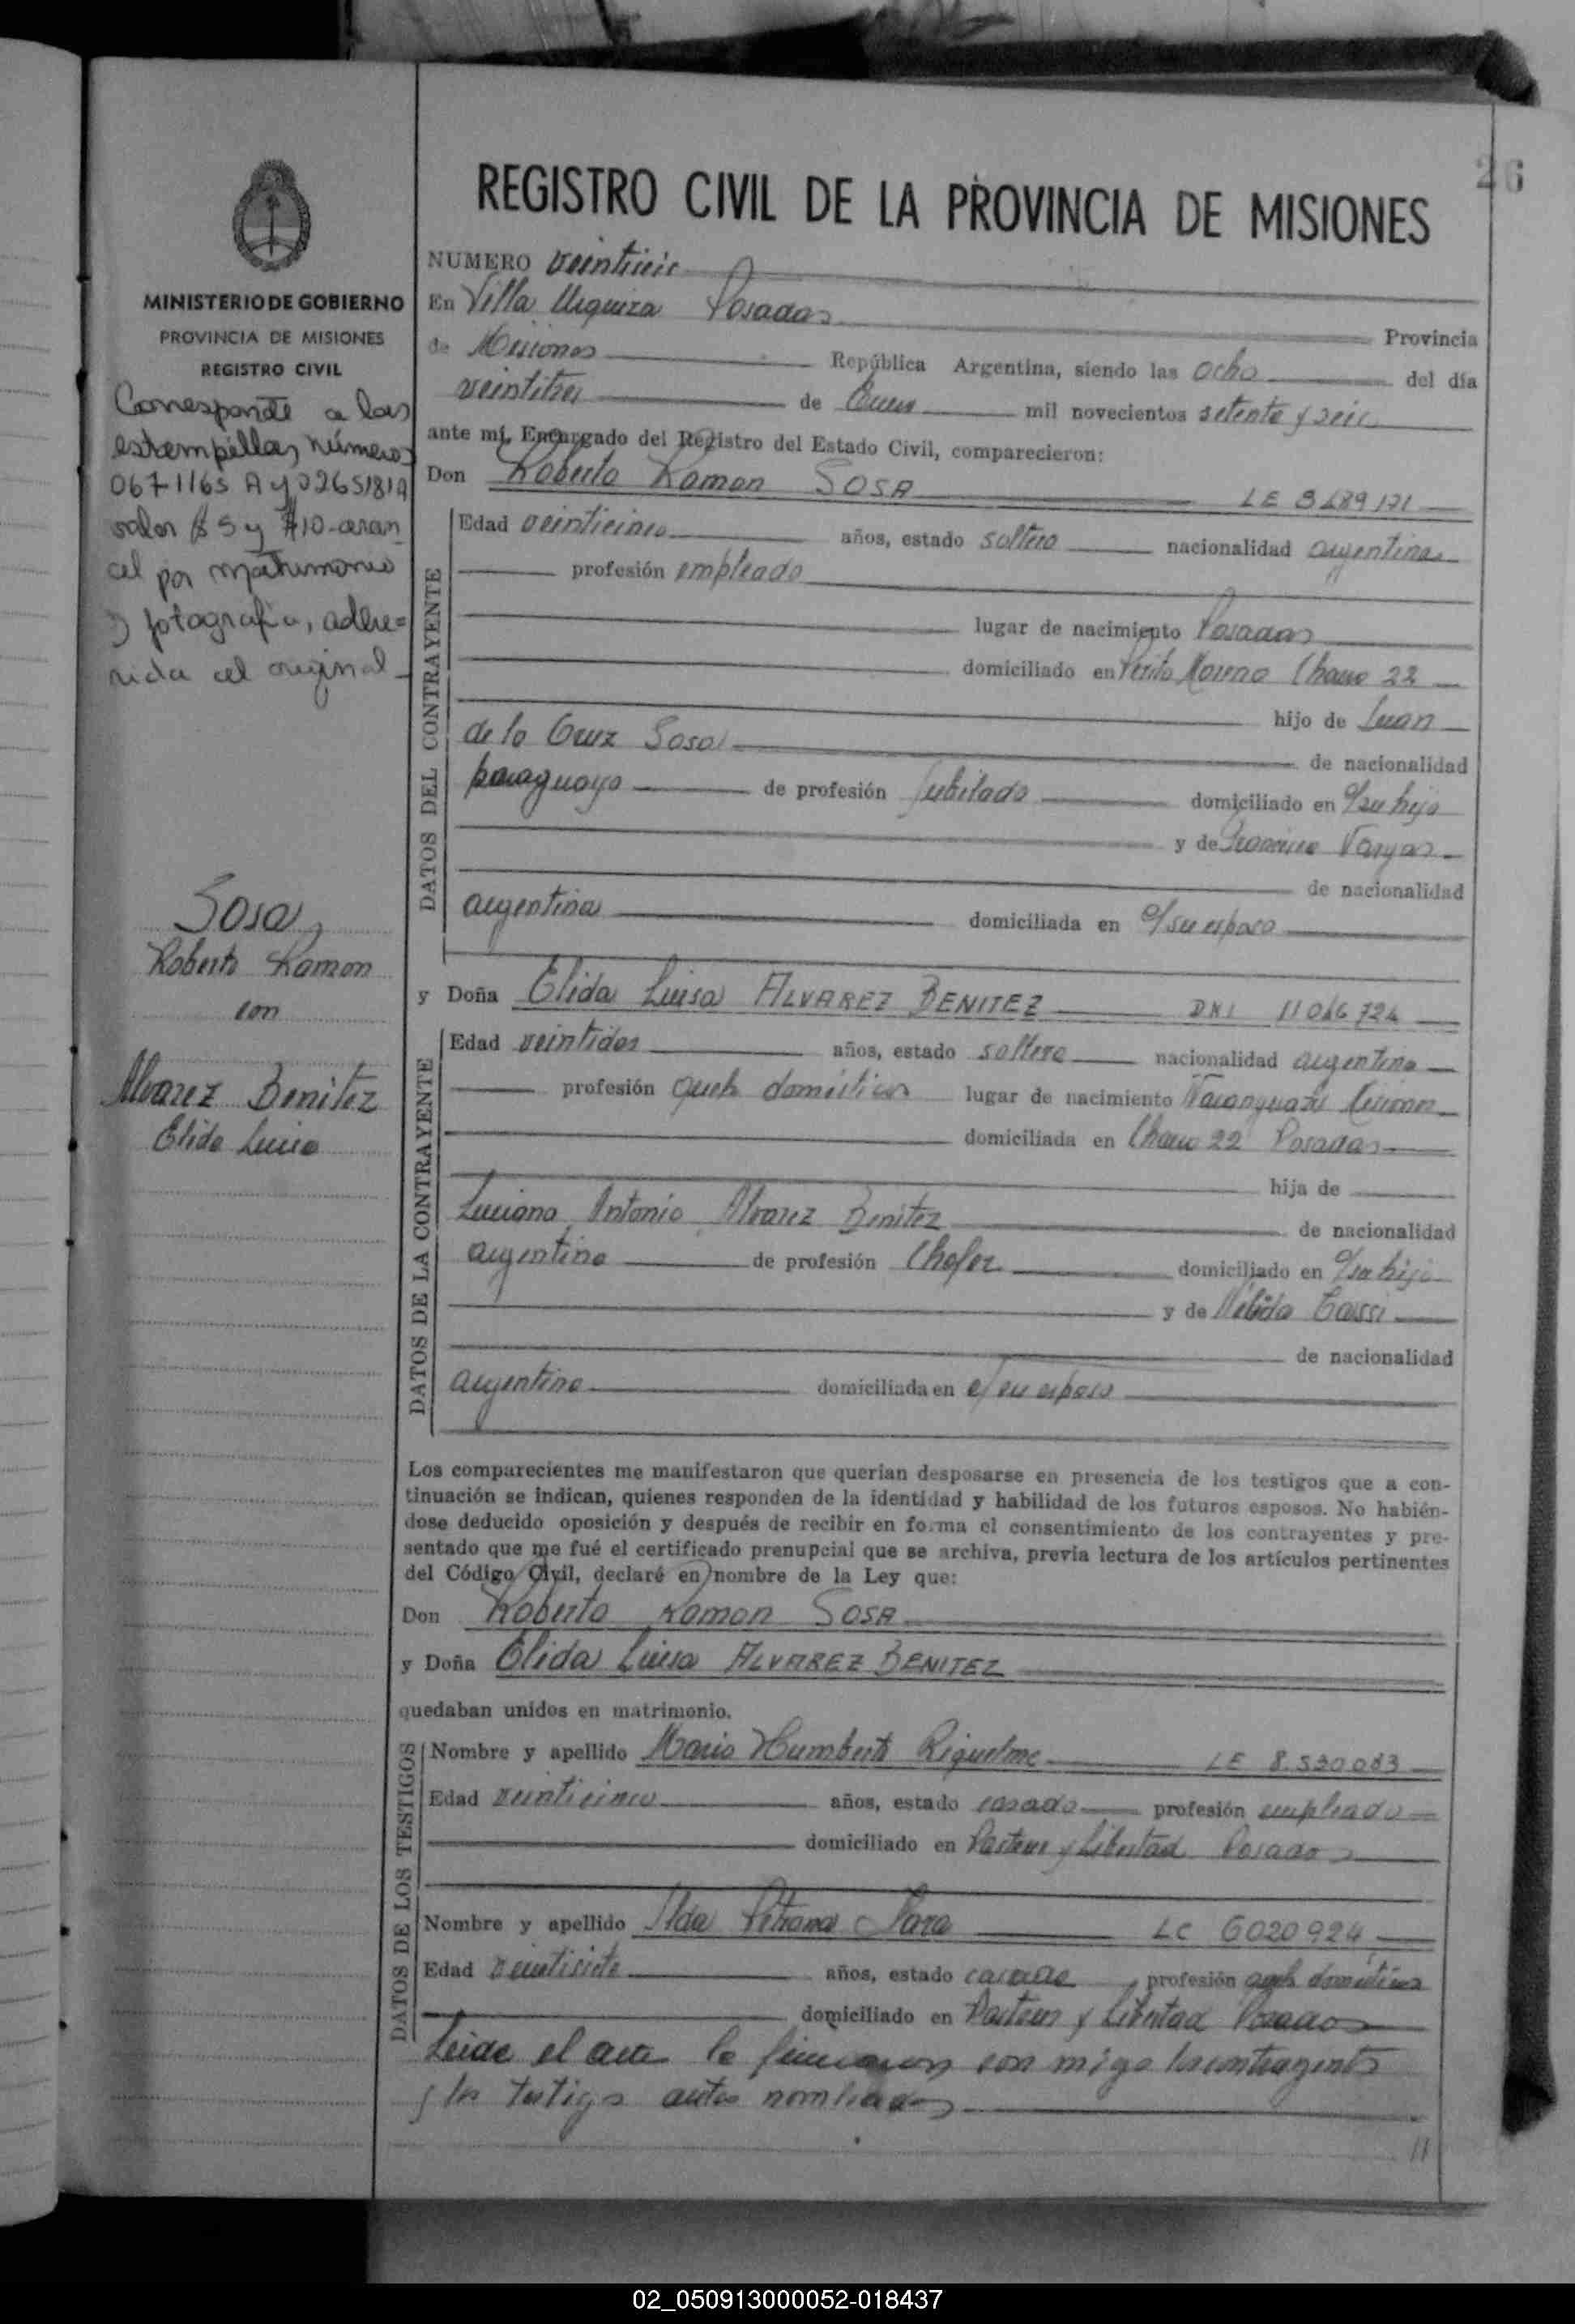 26
REGISTRO CIVIL DE LA PROVINCIA DE MISIONES
MINISTERIO DE GOBIERNO
PROVINCIA DE MISIONES
REGISTRO CIVIL
Corresponde a las
estampillas números
0671165 A y 0265181A
valor $5 y $10 aran
cel por matrimonio
y fotografia, adhe=
rida al original
Sosa
Roberto Ramon
con
Alvarez Benitez
Elida Luisa
NUMERO veintiseis
En Villa Urquiza Posadas Provincia
de Misiones República Argentina, siendo las ocho del día
veintitres de Enero mil novecientos setenta y seis
ante mí, Encargado del Registro del Estado Civil, comparecieron:
Don Roberto Ramon SOSA LE
DATOS DEL CONTRAYENTE
Edad veinticinco años, estado soltero nacionalidad argentina
profesión empleado
lugar de nacimiento Posadas
domiciliado en Perito Moreno Chacra 22
hijo de Juan
de la Cruz Sosa de nacionalidad
paraguayo de profesión Jubilado domiciliado en c/su hijo
y de Vargas
de nacionalidad
argentina domiciliada en c/su esposo
y Doña Elida Luisa ALVAREZ BENITEZ DNI
DATOS DE LA CONTRAYENTE
Edad veintidos años, estado soltera nacionalidad argentina
profesión queh domésticos lugar de nacimiento Misiones
domiciliada en Chacra 22 Posadas
hija de
Luciano Antonio Alvarez Benitez de nacionalidad
argentino de profesión Chofer domiciliado en c/su hija
y de Nélida
de nacionalidad
argentina domiciliada en c/su esposo
Los comparecientes me manifestaron que querían desposarse en presencia de los testigos que a con-
tinuación se indican, quienes responden de la identidad y habilidad de los futuros esposos. No habién-
dose deducido oposición y después de recibir en forma el consentimiento de los contrayentes y pre-
sentado que me fué el certificado prenupcial que se archiva, previa lectura de los artículos pertinentes
del Código Civil, declaré en nombre de la Ley que:
Don Roberto Ramon SOSA
y Doña Elida Luisa ALVAREZ BENITEZ
quedaban unidos en matrimonio.
DATOS DE LOS TESTIGOS
Nombre y apellido Mario Humberto Riquelme LE 8.520.083
Edad veinticinco años, estado casado profesión empleado
domiciliado en Pasteur y Libertad Posadas
Nombre y apellido Ilda Petrona LC 6020924
Edad veintisiete años, estado casada profesión queh domésticos
domiciliado en Pasteur y Libertad Posadas
Leida el acta la firmaron con migo los contrayentes
y los testigos antes nombrados
02_050913000052-018437